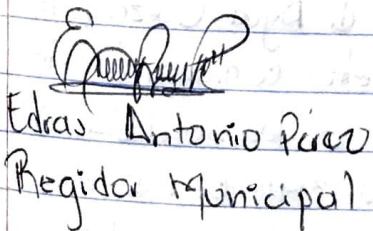 Edras Antonio Pérez
Regidor Municipal